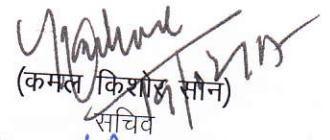 (कमल किशोर सोन)
सचिव